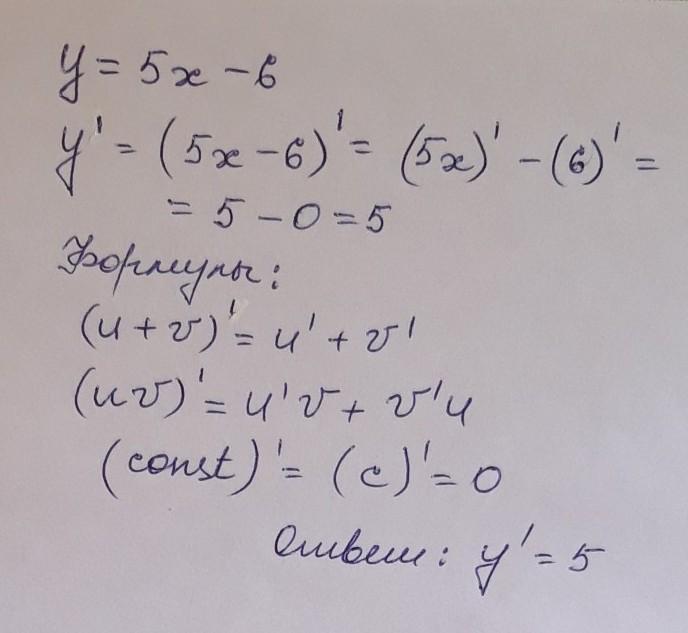 y = 5x - 6
y' = (5x - 6)' = (5x)' - (6)' =
= 5 - 0 = 5
Формулы:
(u + v)' = u' + v'
(uv)' = u'v + v'u
(const)' = (c)' = 0
Ответ: y' = 5